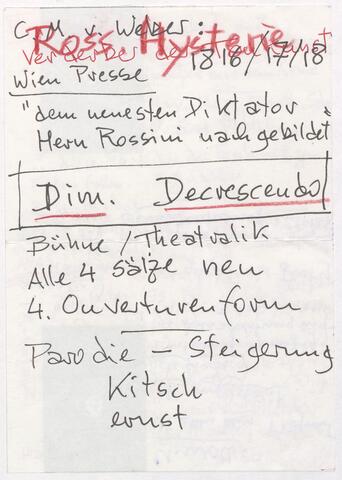 C. M. v. Weber:
Ross Hysterie
Verderber der
1818/17/18
Wien Presse
"dem neuesten Diktator
Herrn Rossini nachgebildet"
Dim. Decrescendo
Bühne / Theatralik
Alle 4 sätze neu
4. Ouvertürenform
Parodie – Steigerung
Kitsch
ernst